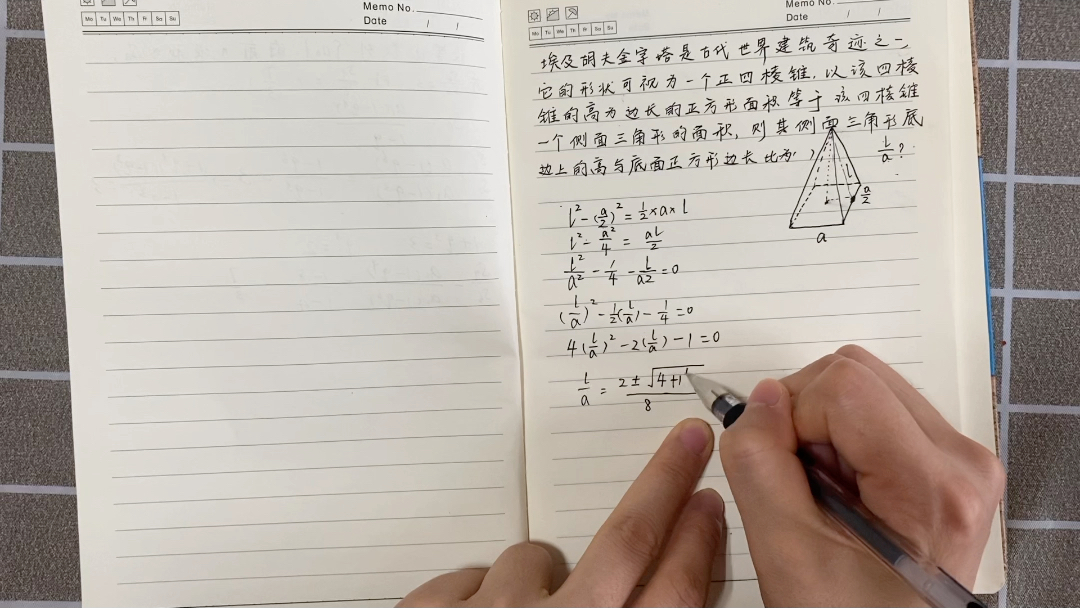 Memo No.
Mo Tu We Th Fr Sa Su
Date / /
Memo No.
Mo Tu We Th Fr Sa Su
Date / /
埃及胡夫金字塔是古代世界建筑奇迹之一,
它的形状可视为一个正四棱锥,以该四棱
锥的高为边长的正方形面积等于该四棱锥
一个侧面三角形的面积,则其侧面三角形底
边上的高与底面正方形边长比为( )
l/a ?
l
a/2
a
l² - (a/2)² = 1/2 × a × l
l² - a²/4 = al/2
l²/a² - 1/4 - l/a2 = 0
(l/a)² - 1/2(l/a) - 1/4 = 0
4(l/a)² - 2(l/a) - 1 = 0
l/a = 2 ± √4+1 / 8